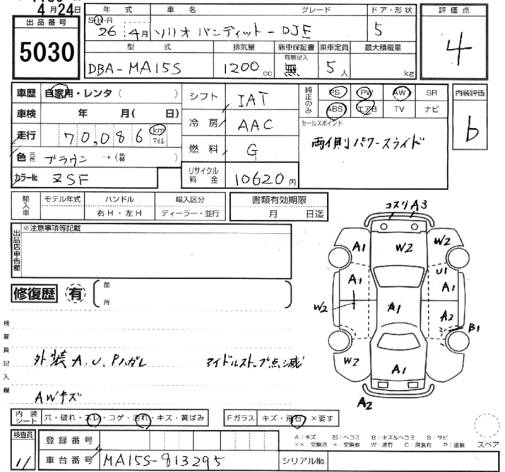 4月24日
出品番号
5030
年式 車名 グレード ドア・形状 評価点
S・H・R
26年 4月 ソリオ バンディット-DJE 5 4
型式 排気量 新車保証書 乗車定員 最大積載量
有無記入
DBA-MA15S 1200cc 無 5人 kg
車歴 自家用・レンタ( )
車検 年 月( 日)
走行 70,086 km マイル
色 元色 ブラウン→(替 )
カラーNo. ZSF
シフト IAT
冷房 AAC
燃料 G
リサイクル料金 10620円
純正のみ PS PW AW SR
ABS エアB TV ナビ
セールスポイント
両側パワースライド
内装評価
b
輸入車 モデル年式 ハンドル 輸入区分
右H・左H ディーラー・並行
書類有効期限
月 日迄
出品店申告欄
※注意事項等記載
修復歴 有 (箇所
検査員記入欄
外装A.U.Pハガレ アイドルストップ点滅
AWキズ
コスリA3
A1 W2 W2
A1 U1 A1
W2 A1 A2
B1
W2 A1 W2
A2
内装シート 穴・破れ・スレ・コゲ・汚れ・キズ・黄ばみ
Fガラス キズ・飛石・×要す
A:キズ 凹:ヘコミ B:キズ&ヘコミ S:サビ
××:交換済 ×:交換要 W:波有 C:腐食有 P:塗装
スペア
検査員 11
登録番号
車台番号 MA15S-813295
シリアルNo.